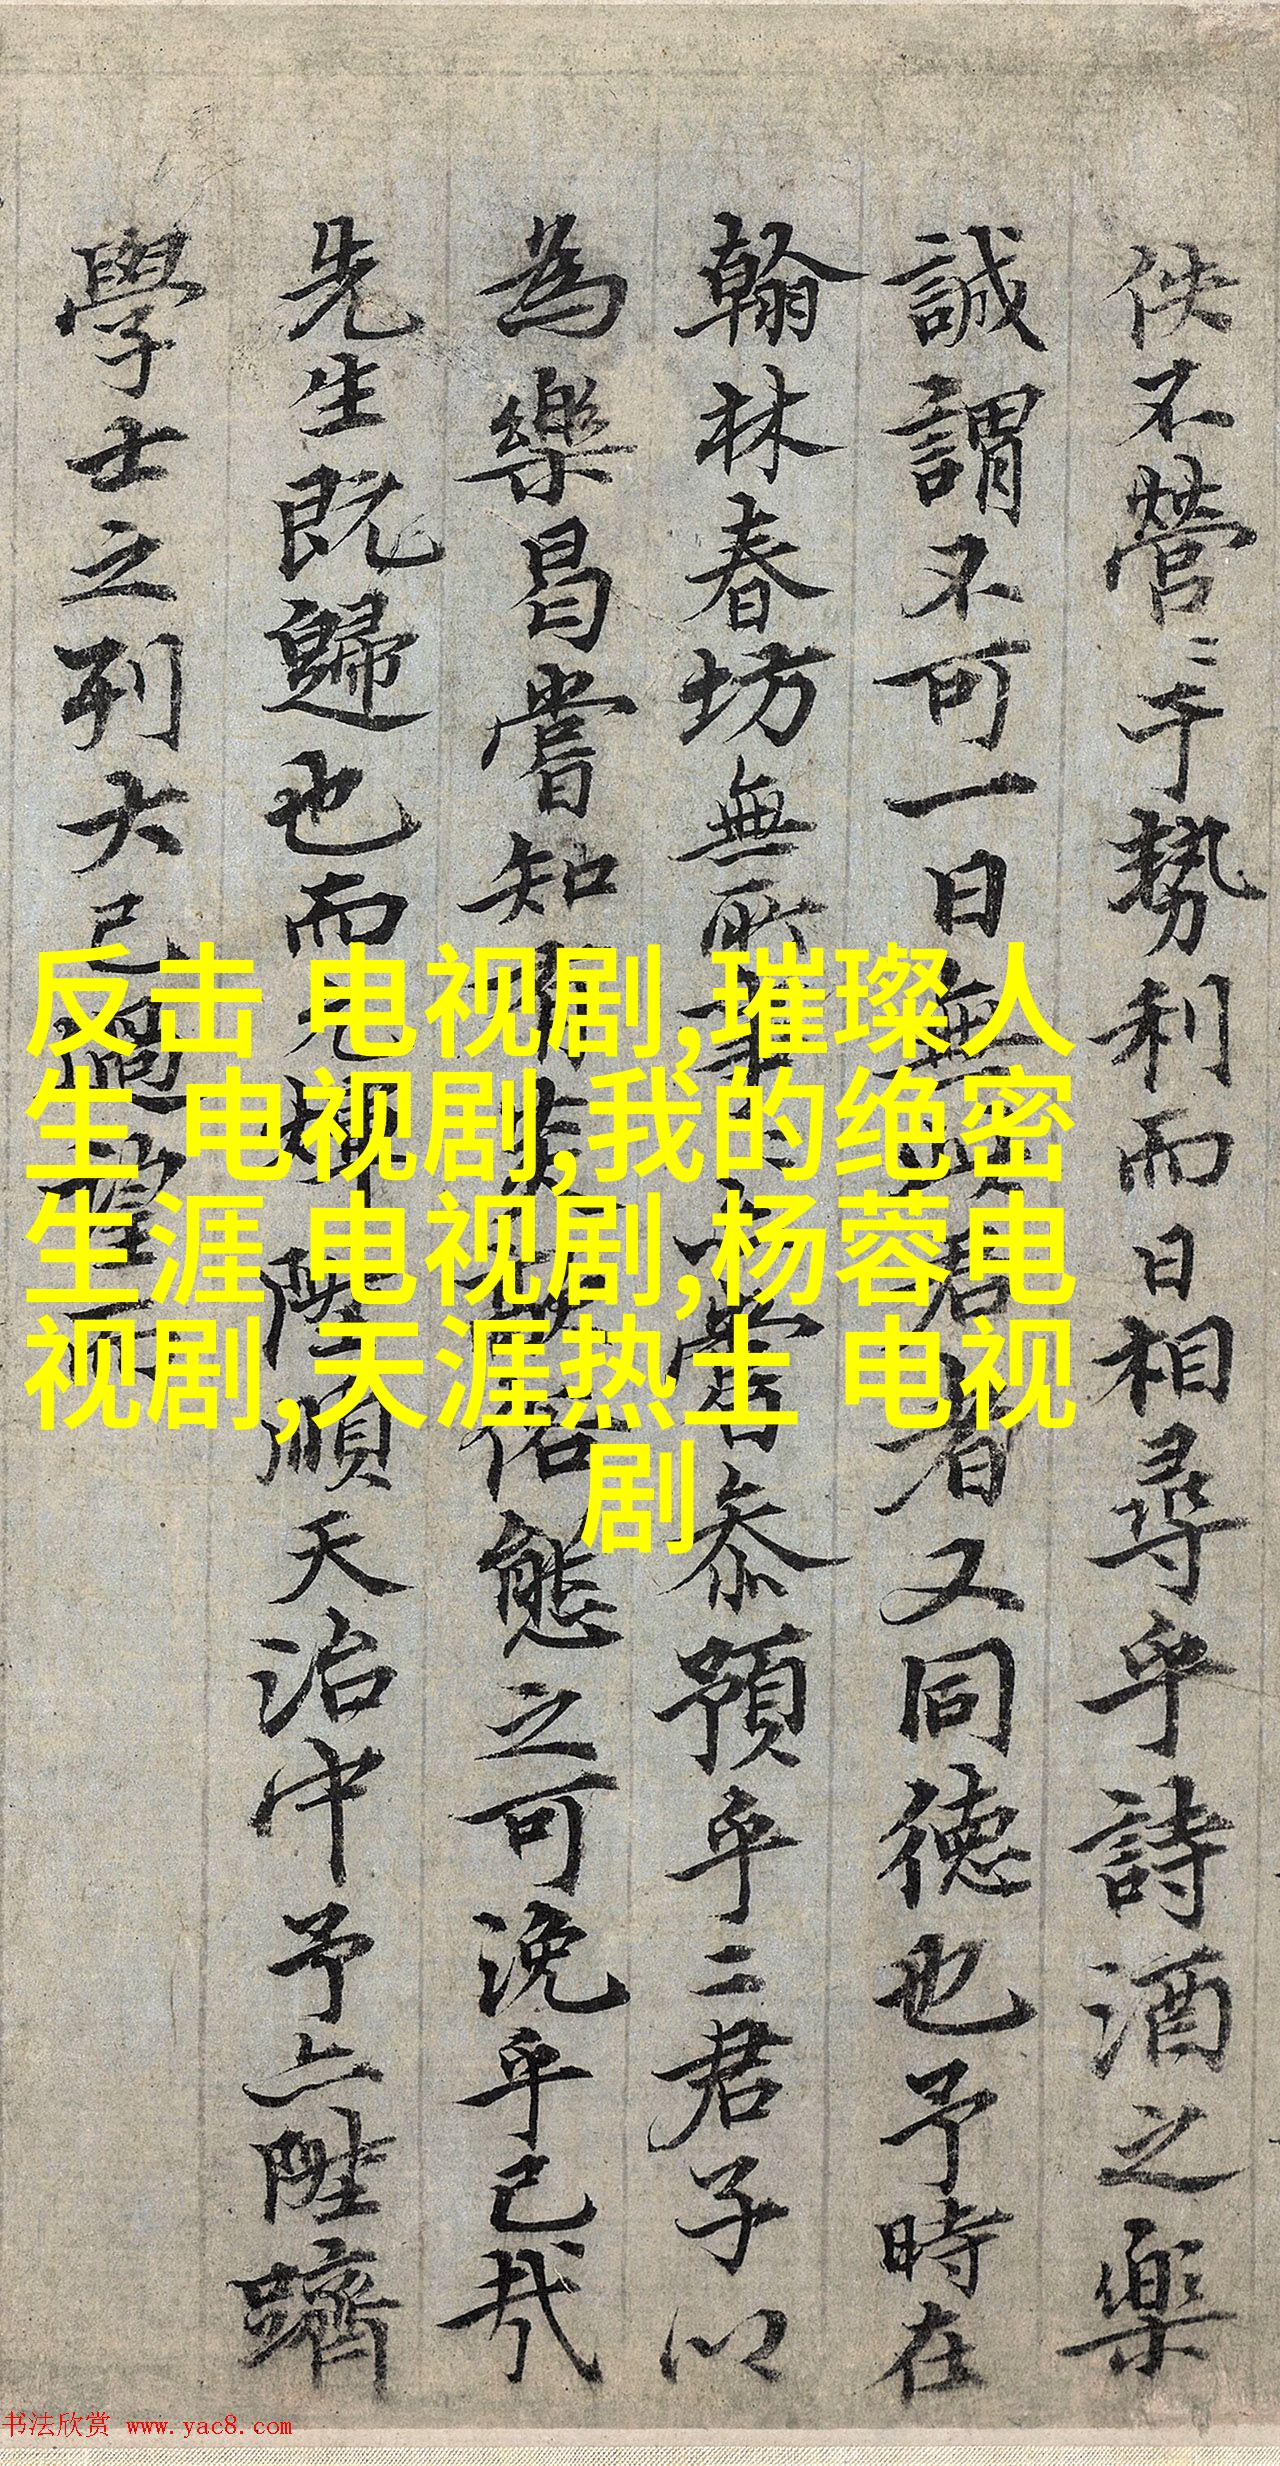 佚不營〻于勢利而日相尋乎詩酒之樂
誠謂不可一日無君者又同德也予時在
翰林春坊無所嘗叅預乎二君子以
為樂曷嘗知俗態之可浼乎己哉
先生既歸也而陞順天治中予亦陞躋
學士之列大已過望而
反击 电视剧,璀璨人
生 电视剧,我的绝密
生涯 电视剧,杨蓉电
视剧,天涯热土 电视
剧
书法欣赏 www.yac8.com